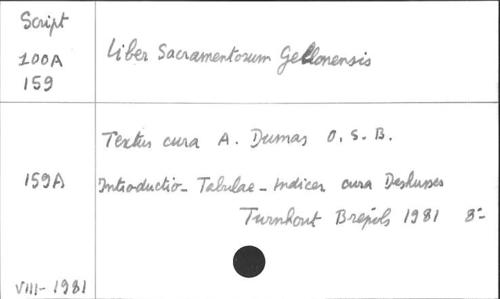 Script
100A
159
Liber Sacramentorum Gellonensis
Textus cura A. Dumas O. S. B.
159A
Introductio - Tabulae - Indices cura Deshusses
Turnhout Brepols 1981 8°
VIII - 1981